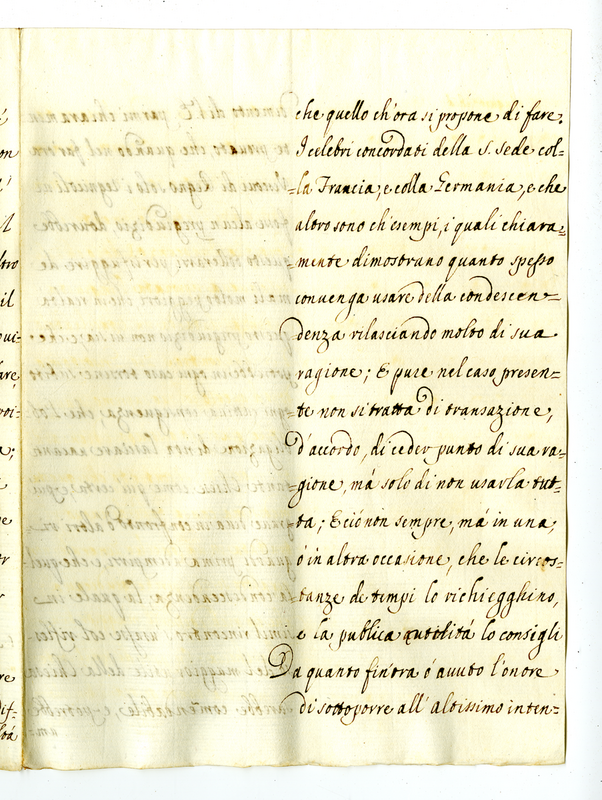 che quello ch'ora si propone di fare.
I celebri concordati della S. Sede col=
=la Francia, e colla Germania, e che
altro sono ch'esempi, i quali chiara=
=mente dimostrano quanto spesso
convenga usare della condescen=
denza rilasciando molto di sua
ragione; E pure nel caso presen=
=te non si tratta di transazione,
d'accordo, di ceder punto di sua ra=
=gione, má solo di non usarla tut=
=ta; E ció non sempre, má in una,
ó in altra occasione, che le circos=
=tanze de tempi lo richiegghino,
e la publica utilitá lo consigli
Da quanto fin'ora ó avuto l'onore
di sottoporre all'altissimo inten=